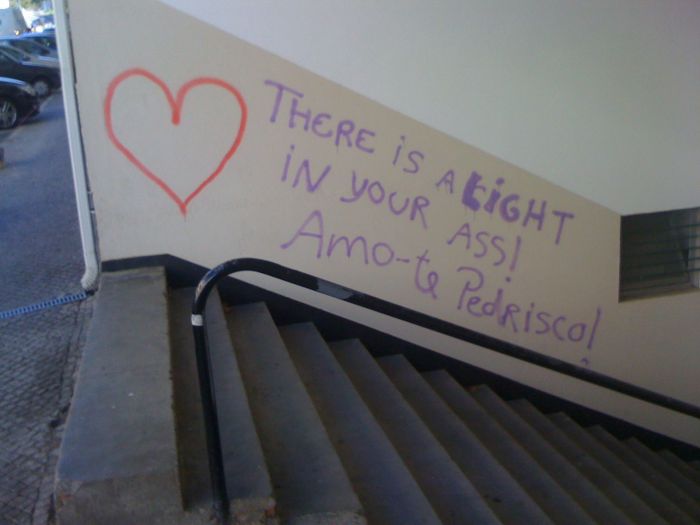 THERE iS A LiGHT
iN YOUR ASS!
Amo-te Pedrisco!